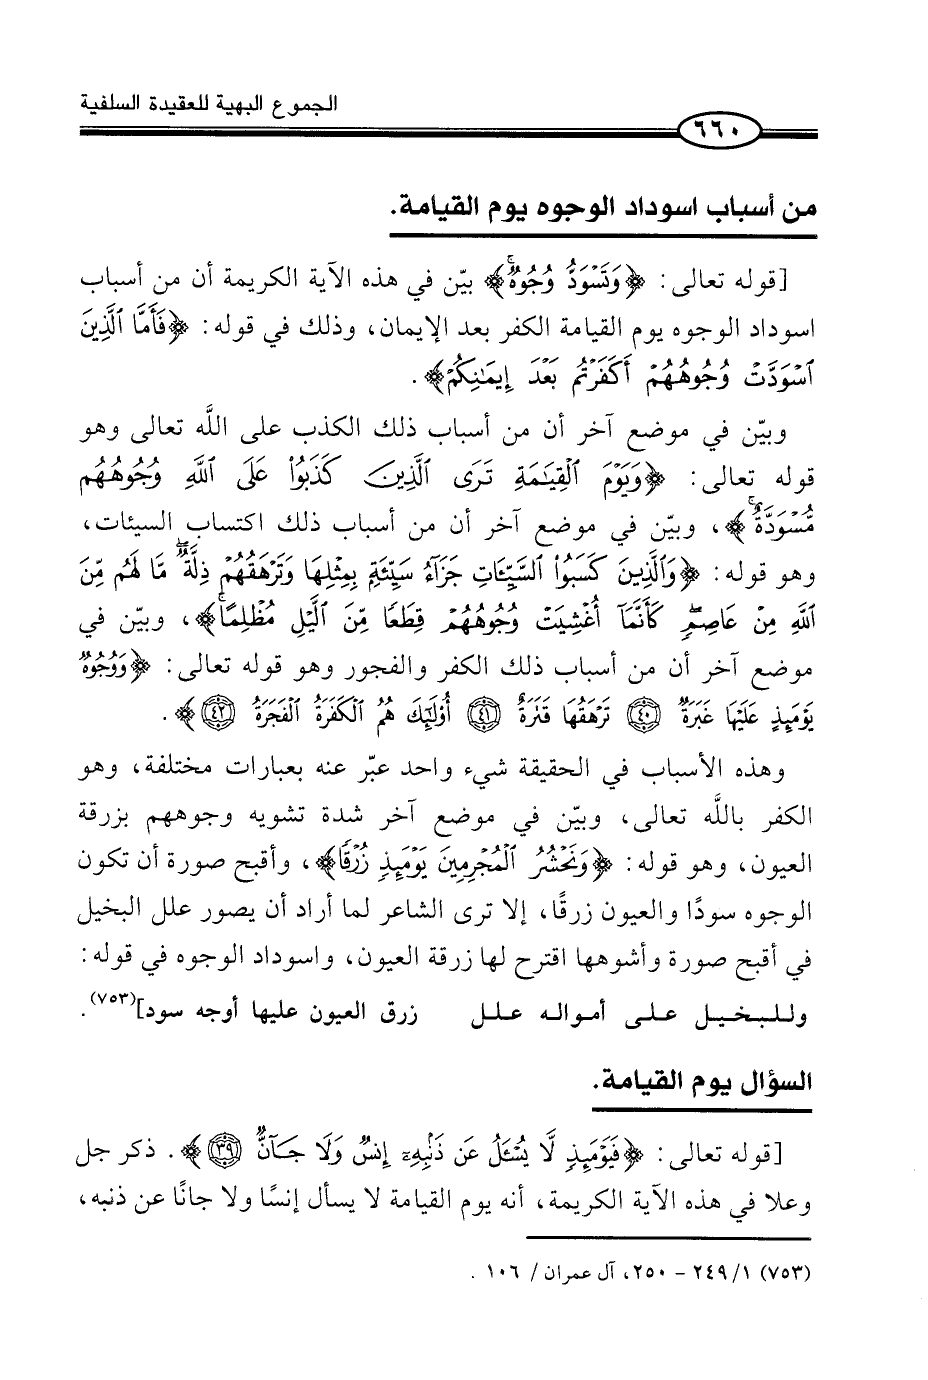 الجموع البهية للعقيدة السلفية
٦٦٠
من أسباب اسوداد الوجوه يوم القيامة.
[قوله تعالى: ﴿وَتَسْوَدُّ وُجُوهٌ﴾ بيّن في هذه الآية الكريمة أن من أسباب
اسوداد الوجوه يوم القيامة الكفر بعد الإيمان، وذلك في قوله: ﴿فَأَمَّا ٱلَّذِينَ
ٱسْوَدَّتْ وُجُوهُهُمْ أَكَفَرْتُم بَعْدَ إِيمَٰنِكُمْ﴾ .
وبيّن في موضع آخر أن من أسباب ذلك الكذب على اللَّه تعالى وهو
قوله تعالى: ﴿وَيَوْمَ ٱلْقِيَٰمَةِ تَرَى ٱلَّذِينَ كَذَبُوا۟ عَلَى ٱللَّهِ وُجُوهُهُم
مُّسْوَدَّةٌ﴾ ، وبيّن في موضع آخر أن من أسباب ذلك اكتساب السيئات،
وهو قوله: ﴿وَٱلَّذِينَ كَسَبُوا۟ ٱلسَّيِّـَٔاتِ جَزَآءُ سَيِّئَةٍۭ بِمِثْلِهَا وَتَرْهَقُهُمْ ذِلَّةٌ ۖ مَّا لَهُم مِّنَ
ٱللَّهِ مِنْ عَاصِمٍ ۖ كَأَنَّمَآ أُغْشِيَتْ وُجُوهُهُمْ قِطَعًا مِّنَ ٱلَّيْلِ مُظْلِمًا ۚ﴾ ، وبيّن في
موضع آخر أن من أسباب ذلك الكفر والفجور وهو قوله تعالى: ﴿وَوُجُوهٌ
يَوْمَئِذٍ عَلَيْهَا غَبَرَةٌ ٤٠ تَرْهَقُهَا قَتَرَةٌ ٤١ أُو۟لَٰٓئِكَ هُمُ ٱلْكَفَرَةُ ٱلْفَجَرَةُ ٤٢﴾ .
وهذه الأسباب في الحقيقة شيء واحد عبّر عنه بعبارات مختلفة، وهو
الكفر باللَّه تعالى، وبيّن في موضع آخر شدة تشويه وجوههم بزرقة
العيون، وهو قوله: ﴿وَنَحْشُرُ ٱلْمُجْرِمِينَ يَوْمَئِذٍ زُرْقًا﴾ ، وأقبح صورة أن تكون
الوجوه سودًا والعيون زرقًا، إلا ترى الشاعر لما أراد أن يصور علل البخيل
في أقبح صورة وأشوهها اقترح لها زرقة العيون، واسوداد الوجوه في قوله:
وللبخيل على أمواله علل زرق العيون عليها أوجه سود](٧٥٣).
السؤال يوم القيامة.
[قوله تعالى: ﴿فَيَوْمَئِذٍ لَّا يُسْـَٔلُ عَن ذَنۢبِهِۦٓ إِنسٌ وَلَا جَآنٌّ ٣٩﴾ . ذكر جل
وعلا في هذه الآية الكريمة، أنه يوم القيامة لا يسأل إنسًا ولا جانًا عن ذنبه،
(٧٥٣) ١/ ٢٤٩ - ٢٥٠، آل عمران / ١٠٦ .